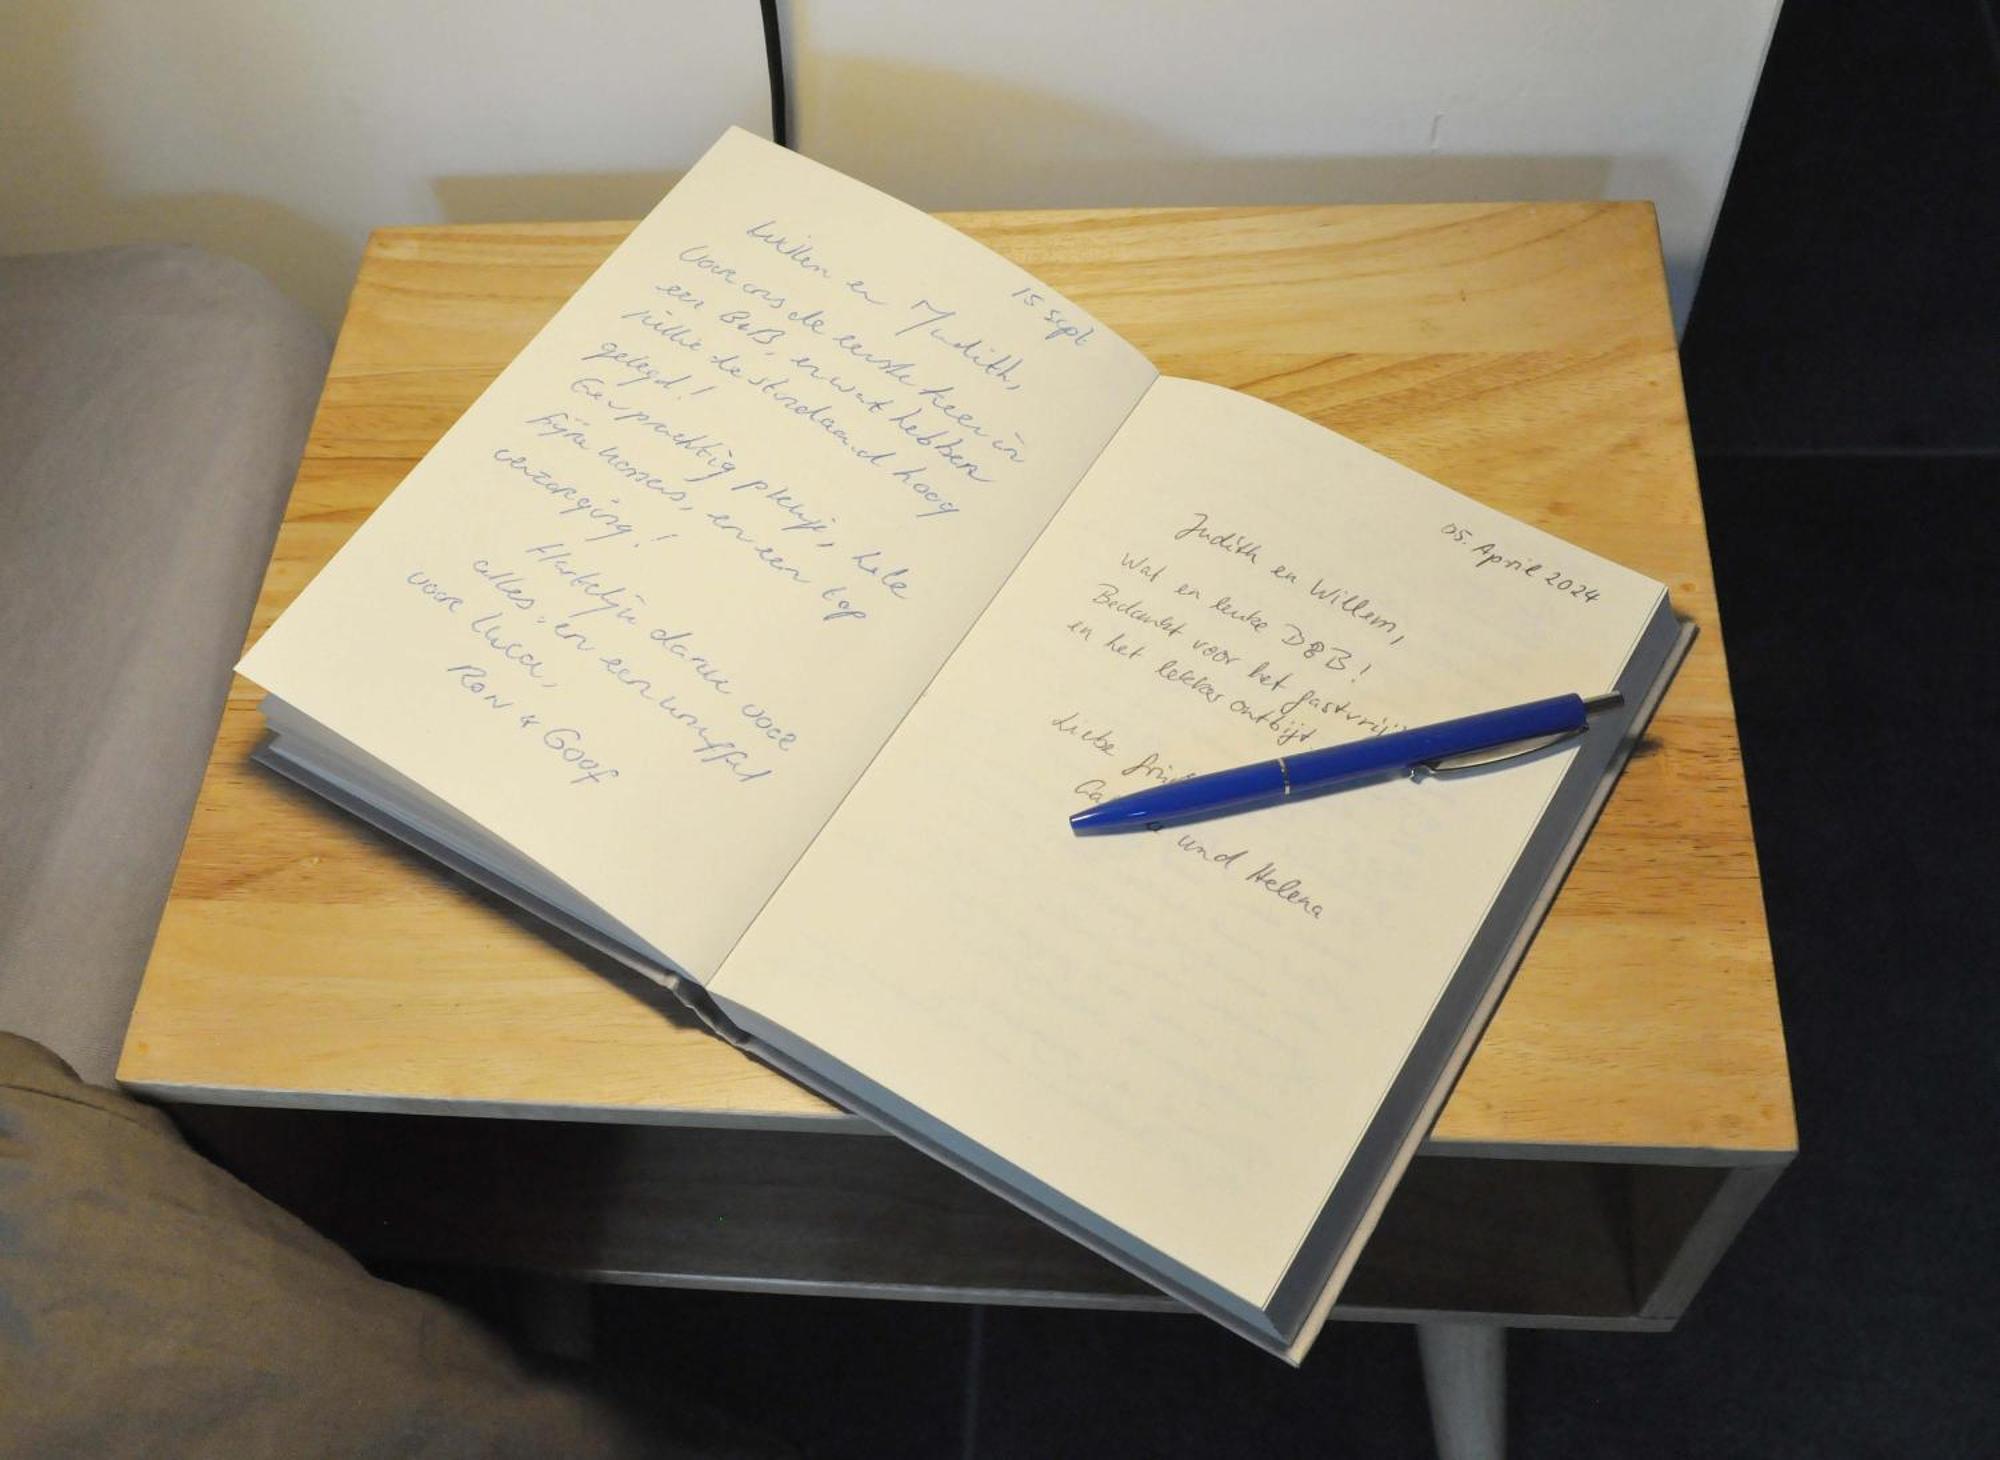 15 sept
Willem en Judith,
Voor ons de eerste keer in
een B&B, en wat hebben
jullie de standaard hoog
gelegd!
Een prachtig plekje, hele
fijne kamers, en een top
verzorging!
Hartelijk dank voor
alles, en een knuffel
voor Luca,
Ron & Goof
05. April 2024
Judith en Willem,
Wat en leuke B&B!
Bedankt voor het gastvrij
en het lekker ontbijt
Liebe
und Helena